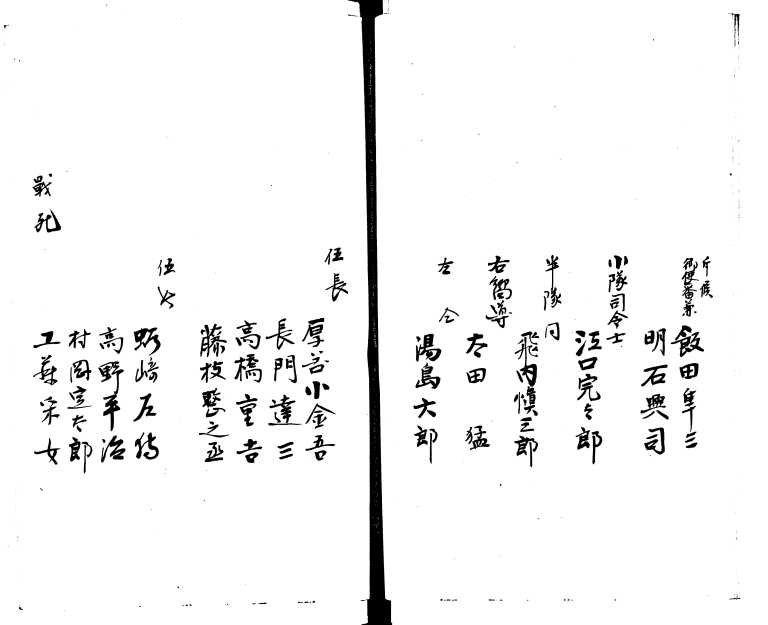 斤候
御使番兼
飯田皐三
明石興司
小隊司令士
江口完々郎
半隊同
飛内慎三郎
右嚮導
太田猛
左仝
湯島太郎
伍長
厚谷小金吾
長門達三
高橋重吉
藤枝愍之丞
伍々
蛎崎石
高野平治
村岡定太郎
戰死
工藤采女